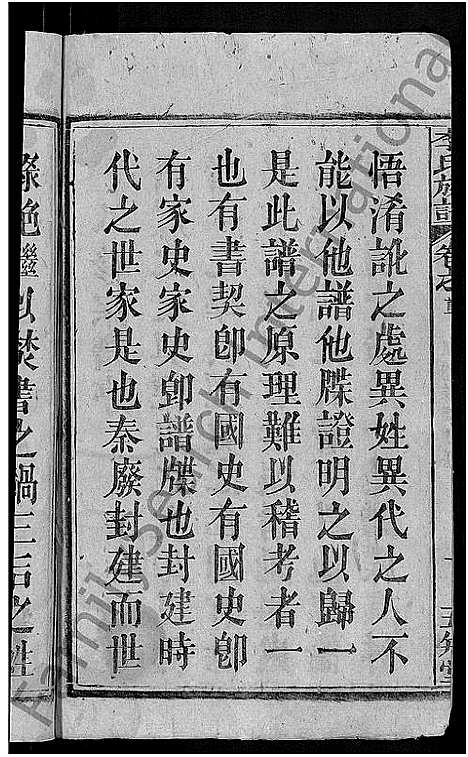 李氏族譜 卷之首
悟淆訛之處異姓異代之人不
能以他譜他牒證明之以歸一
是此譜之原理難以稽考者一
也有書契卽有國史有國史卽
有家史家史卽譜牒也封建時
代之世家是也秦廢封建而世
絕繼以焚書之禍三古之姓
Family Search International